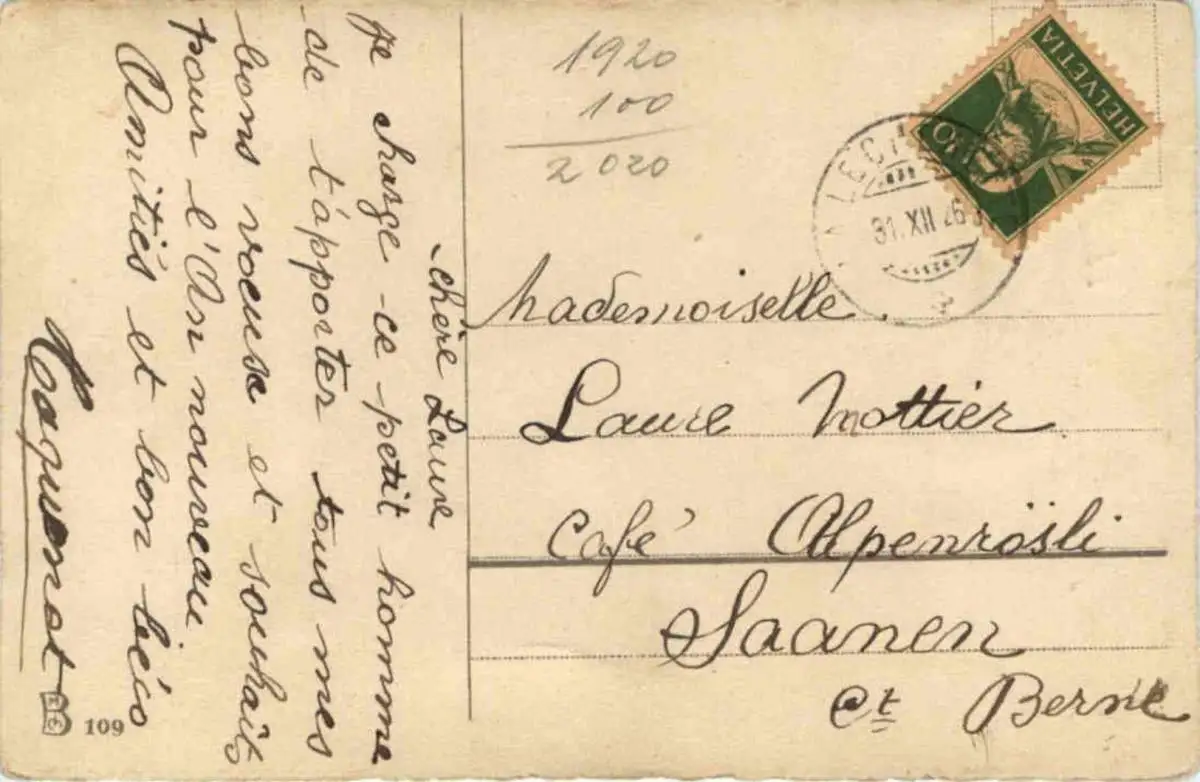 chère Laure
je charge ce petit homme
de t'apporter tous mes
bons voeuse et souhaits
pour l'An nouveau
Amitiés et bon
1920
100
2020
HELVETIA
10
31.XII 26
Mademoiselle
Laure Mottier
Café Alpenrösli
Saanen
Ct Berne
109